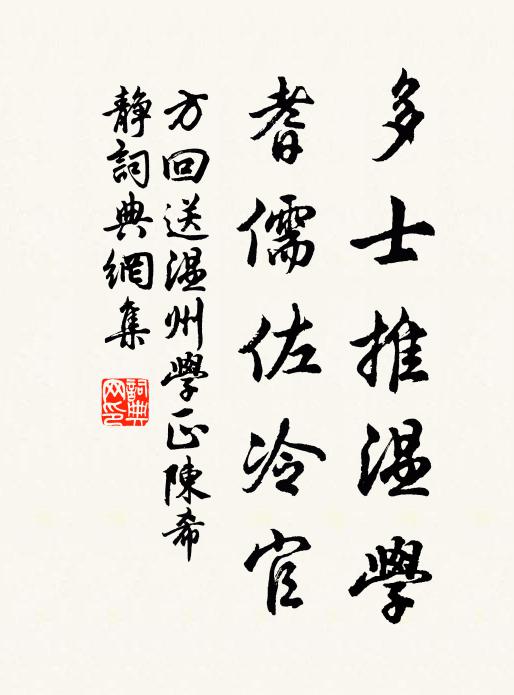 多士推温學
耆儒佐冷官
方回送温州學正陳希
靜詞典網集
詞典网印